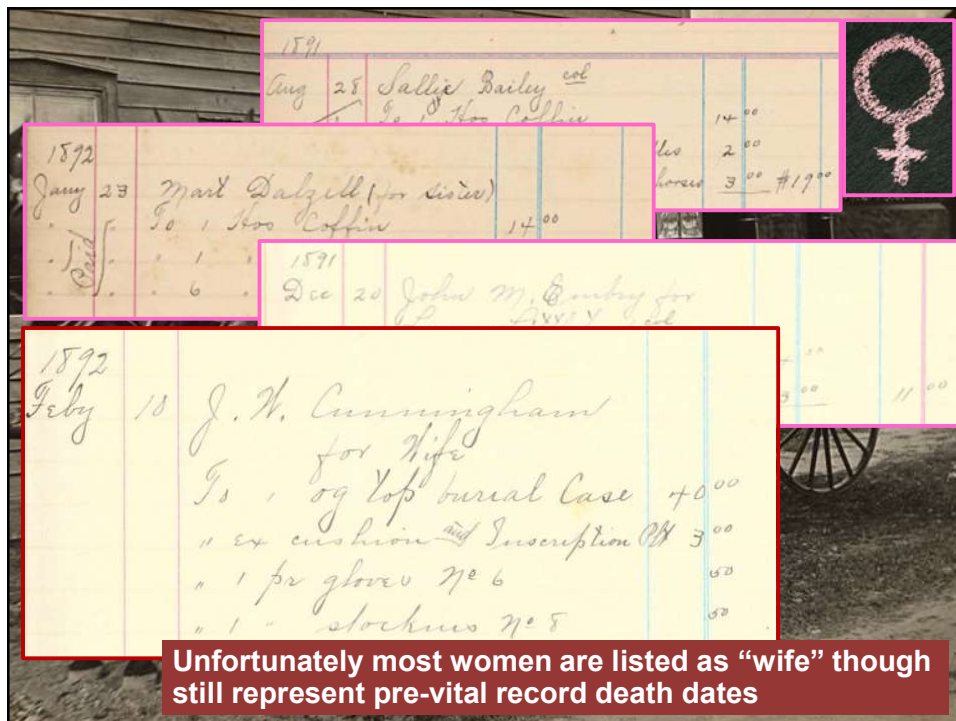 1891
Aug 28 Sallie Bailey col
" To 1 Hoo Coffin 14 00
2 00
horses 3 00 #19 00
1892
Jany 23 Mart Dalzell (for sister)
" " To 1 Hoo Coffin 14 00
" Paid " " 1 "
" " " 6 "
1891
Dec 20 John M. Embry for
col
3 00 11 00
1892
Feby 10 J. W. Cunningham
for Wife
To 1 og top burial Case 40 00
" ex cushion and Inscription Plt 3 00
" 1 pr gloves No 6 50
" 1 " stockins No 8 50
Unfortunately most women are listed as “wife” though
still represent pre-vital record death dates